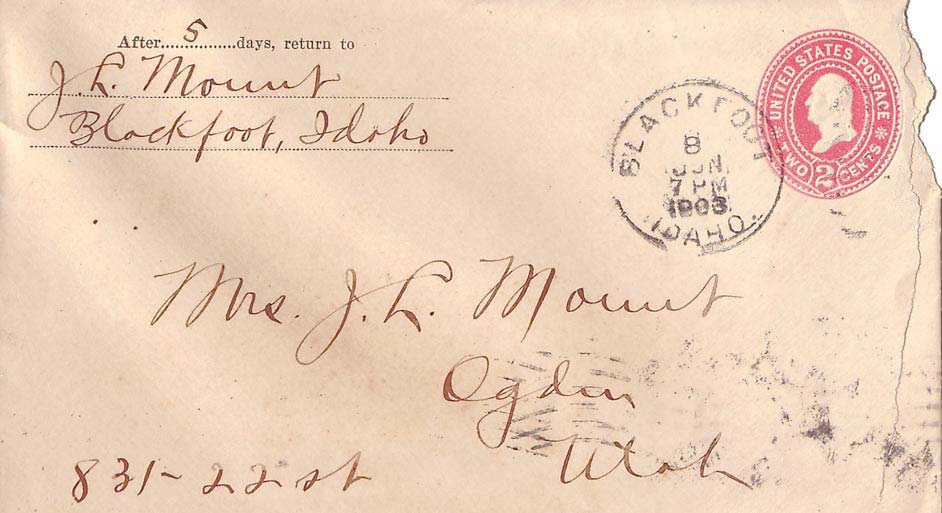 After.....5.....days, return to
J. L. Mount
Blackfoot, Idaho
BLACKFOOT
8
JUN.
7 PM
1903
IDAHO.
UNITED STATES POSTAGE
TWO 2 CENTS
Mrs. J. L. Mount
Ogden
Utah
831-22 st